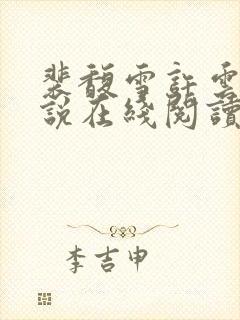 裴馥雪許雲
說在綫閱讀
李吉申